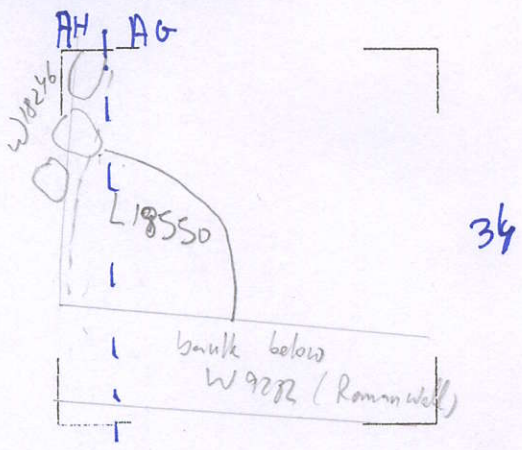 AH AG
W18246
L18550
34
baulk below
W9282 (Roman Wall)